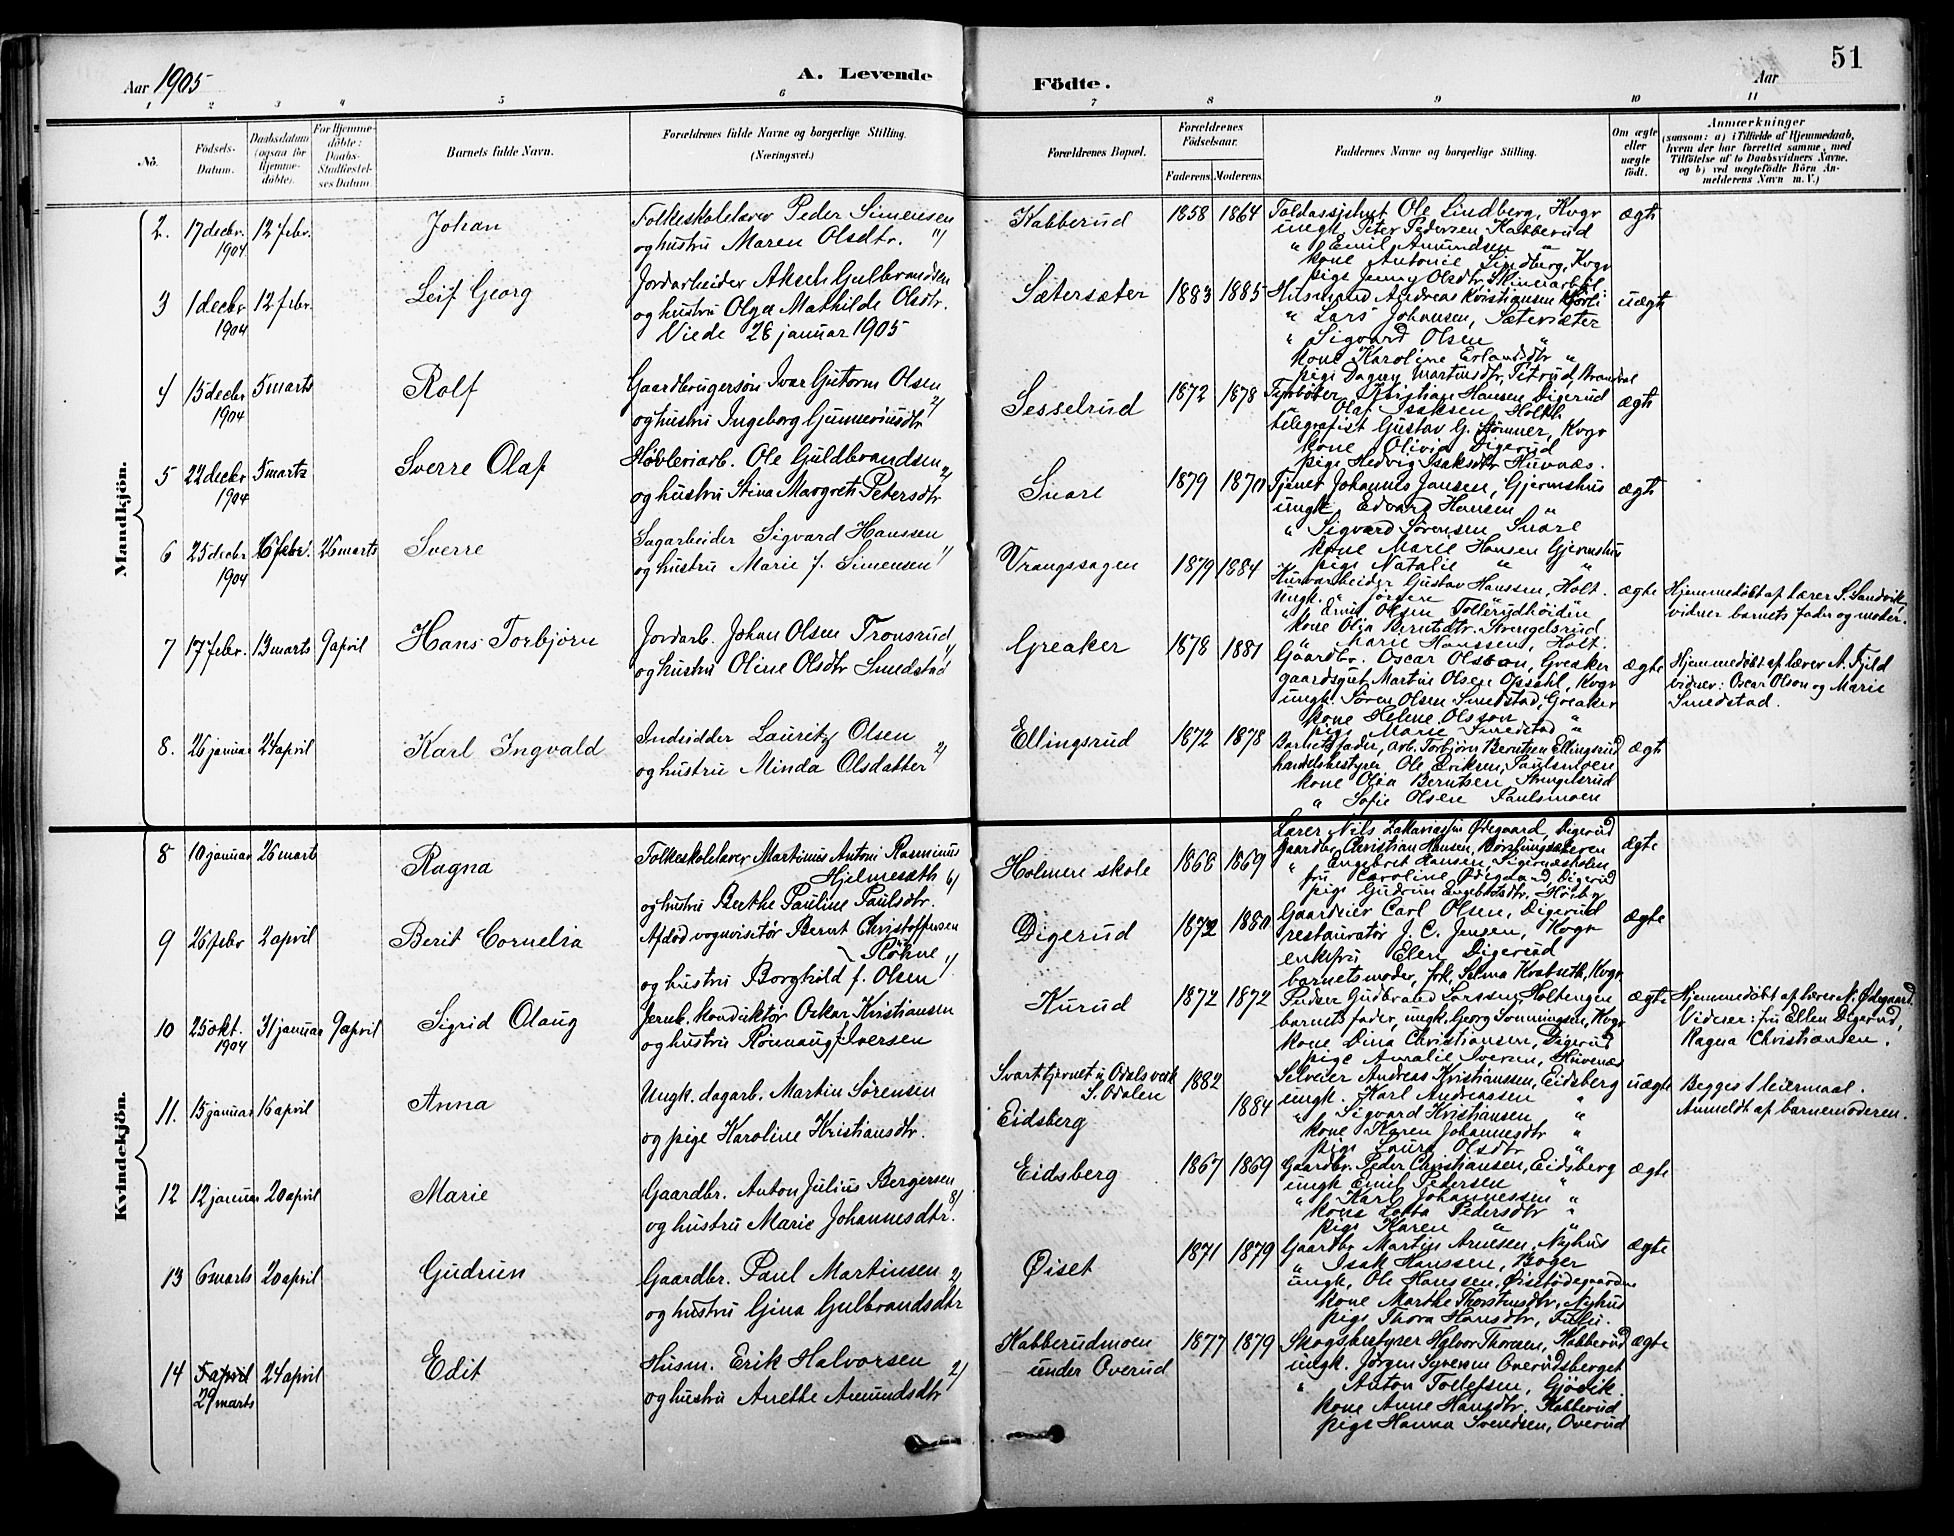 51
Aar 1905
A. Levende
Födte.
Aar
1 2 3 4 5 6 7 8 9 10 11
No.
Födsels-Datum.
Daabsdatum (ogsaa for Hjemme-döbte).
For Hjemme-döbte: Daabs-Stadfæstel-ses Datum
Barnets fulde Navn.
Forældrenes fulde Navne og borgerlige Stilling. (Næringsvei.)
Forældrenes Bopæl.
Forældrenes Födselsaar.
Faderens. Moderens.
Faddernes Navne og borgerlige Stilling.
Om ægte eller uægte födt.
Anmærkninger
(saasom: a) i Tilfælde af Hjemmedaab,
hvem der har forrettet samme, med
Tilföielse af to Daabsvidners Navne,
og b) ved uægtefödte Börn An-
melderens Navn m. V.)
Mandkjön.
2. 17 decbr. 1904 12 febr. Johan
Folkeskolelærer Peder Simensen
og hustru Maren Olsdtr. "/
Kabberud 1858 1864
Toldassistent Ole Lindberg, Kvgr
ungk Peter Pedersen, Kabberud
" Emil Amundsen "
kone Antonie Lindberg, Kvgr
pige Jenny Olsdtr,
ægte
3 1 decbr 1904 12 febr. Leif Georg
Jordarbeider Aksel Gulbrandsen
og hustru Olga Mathilde Olsdtr.
Viede 28 januar 1905
Sætersæter 1883 1885
Husmand Andreas Kristiansen
" Lars Johansen, Sætersæter
" Sigvard Olsen "
kone Karoline Erlandsdtr "
pige Dagny Martinsdtr,
uægte
4 15 decbr 1904 5 marts Rolf
Gaardbrugersøn Ivar Gutorm Olsen
og hustru Ingeborg Gunneriusdtr 2/
Sesselrud 1872 1878
Fyrbøter Kristian Hansen, Digerud
Olaf Isaksen, Holth
telegrafist Gustav G. Stømner, Kvgr
kone Olivia Digerud
pige Hedvig Isaksdtr Huvnæs.
ægte
5 22 decbr 1904 5 marts Sverre Olaf
Høvleriarb. Ole Guldbrandsen
og hustru Stina Margrete Petersdtr 2/
Snare 1879 1870
Tjener Johannes Jansen, Gjermshus
ungk. Edvard Hansen "
" Sigvard Sørensen Snare
kone Marie Hansen Gjermshus
pige Natalie " "
ægte
6 25 decbr 1904 16 febr. 26 marts Sverre
Sagarbeider Sigvard Hanssen
og hustru Marie f. Simensen 1/
Vrangssagen 1879 1884
Kurvarbeider Gustav Hanssen, Holt.
ungk. " Jørgen "
" Emil Olsen Tollerudhøiden
kone Olga Berntsdtr. Strengelsrud
" Karie Hanssen, Holt.
ægte
Hjemmedøbt af lærer S. Sandvik,
vidner barnets fader og moder.
7 17 febr. 13 marts 9 april Hans Torbjørn
Jordarb. Johan Olsen Tronsrud
og hustru Oline Olsdtr Smedstad 1/
Greaker 1878 1881
Gaardbr. Oscar Olsson, Greaker
gaardsgut Martin Olsen Opsahl, Kvgr
ungk. Søren Olsen Smedstad, Greaker
kone Helene Olsson "
pige Marie Smedstad "
ægte
Hjemmedøbt af lærer A. Fjeld
vidner: Oscar Olson og Marie
Smedstad.
8. 26 januar 24 april Karl Ingvald
Indsidder Lauritz Olsen
og hustru Minda Olsdatter 2/
Ellingsrud 1872 1878
Barnets fader, arb. Torbjørn Berntsen Ellingsrud
handelsbestyrer Ole Eriksen, Paulsmoen
kone Olga Berntsen Strengelsrud
" Sofie Olsen Paulsmoen
ægte
Kvindekjön.
8 10 januar 26 marts Ragna
Folkeskolelærer Martinus Antoni Rasminus
Hjelmesæth 6/
og hustru Berthe Pauline Paulsdtr.
Holmen skole 1868 1869
Lærer Nils Zakariassen Ødegaard, Digerud
Gaardbr Christian Hansen,
" Engebret Hansen,
fru Caroline Ødegaard, Digerud
pige Gudrun Engebretsdtr,
ægte
9 26 febr 2 april Berit Cornelia
Afdød vognvisitør Bernt Christoffersen
Røhne
og hustru Borghild f. Olsen 1/
Digerud 1872 1880
Gaardeier Carl Olsen, Digerud
restauratør J. C. Jensen, Kvgr
enkefru Elen Digerud
barnets moder, frk. Selma Kvebæk, Kvgr
ægte
10 25 okt. 1904 31 januar 9 april Sigrid Olaug
Jernb. konduktør Oskar Kristiansen
og hustru Rønnaug f. Iversen
Kurud 1872 1872
Pudser Gudbrand Larssen, Holtengen
barnets fader, ungk. Georg Sonningsen, Kvgr
kone Dina Christiansen, Digerud
pige Amalie Iversen, Huvenæs
ægte
Hjemmedøbt af lærer N. Ødegaard.
Vidner: fru Ellen Digerud,
Ragna Christiansen.
11. 15 januar 16 april Anna
Ungk. dagarb. Martin Sørensen
og pige Karoline Kristiansdtr.
Svarttjernet i Odalsverk
S. Odalen
Eidsberg
1882 1884
Selveier Andreas Kristianssen, Eidsberg
ungk. Karl Andreassen "
" Sigvard Kristiansen "
kone Karen Johannesdtr "
pige Laura Olsdtr "
uægte
Begges 1 leiermaal.
Anmeldt af barnemoderen.
12 12 januar 20 april Marie
Gaardbr. Anton Julius Bergersen
og hustru Marie Johannesdtr. 8/
Eidsberg 1867 1869
Gaardbr. Peder Christiansen, Eidsberg
ungk Emil Pedersen "
" Karl Johannessen "
kone Lotta Pedersdtr "
pige Karen " "
ægte
13 6 marts 20 april Gudrun
Gaardbr. Paul Martinsen
og hustru Gina Gulbrandsdtr 2/
Øiset 1871 1879
Gaardbr Martin Arnesen, Nyhus
" Isak Hanssen, Boger
ungk. Ole Hanssen, Øisetødegaarden
kone Marthe Thorstensdtr, Nyhus
pige Thora Hansdtr,
ægte
14 5 april 29 marts 24 april Edit
Husm. Erik Halvorsen
og hustru Anette Amundsdtr 2/
Kabberudmoen
under Overud
1877 1879
Skogsbestyrer Halvor Thoresen, Kabberud
ungk. Jørgen Syversen Overudsberget
" Anton Tollefsen, Gjøvik.
kone Anne Hansdtr. Kabberud
pige Hanna Svendsen, Overud
ægte